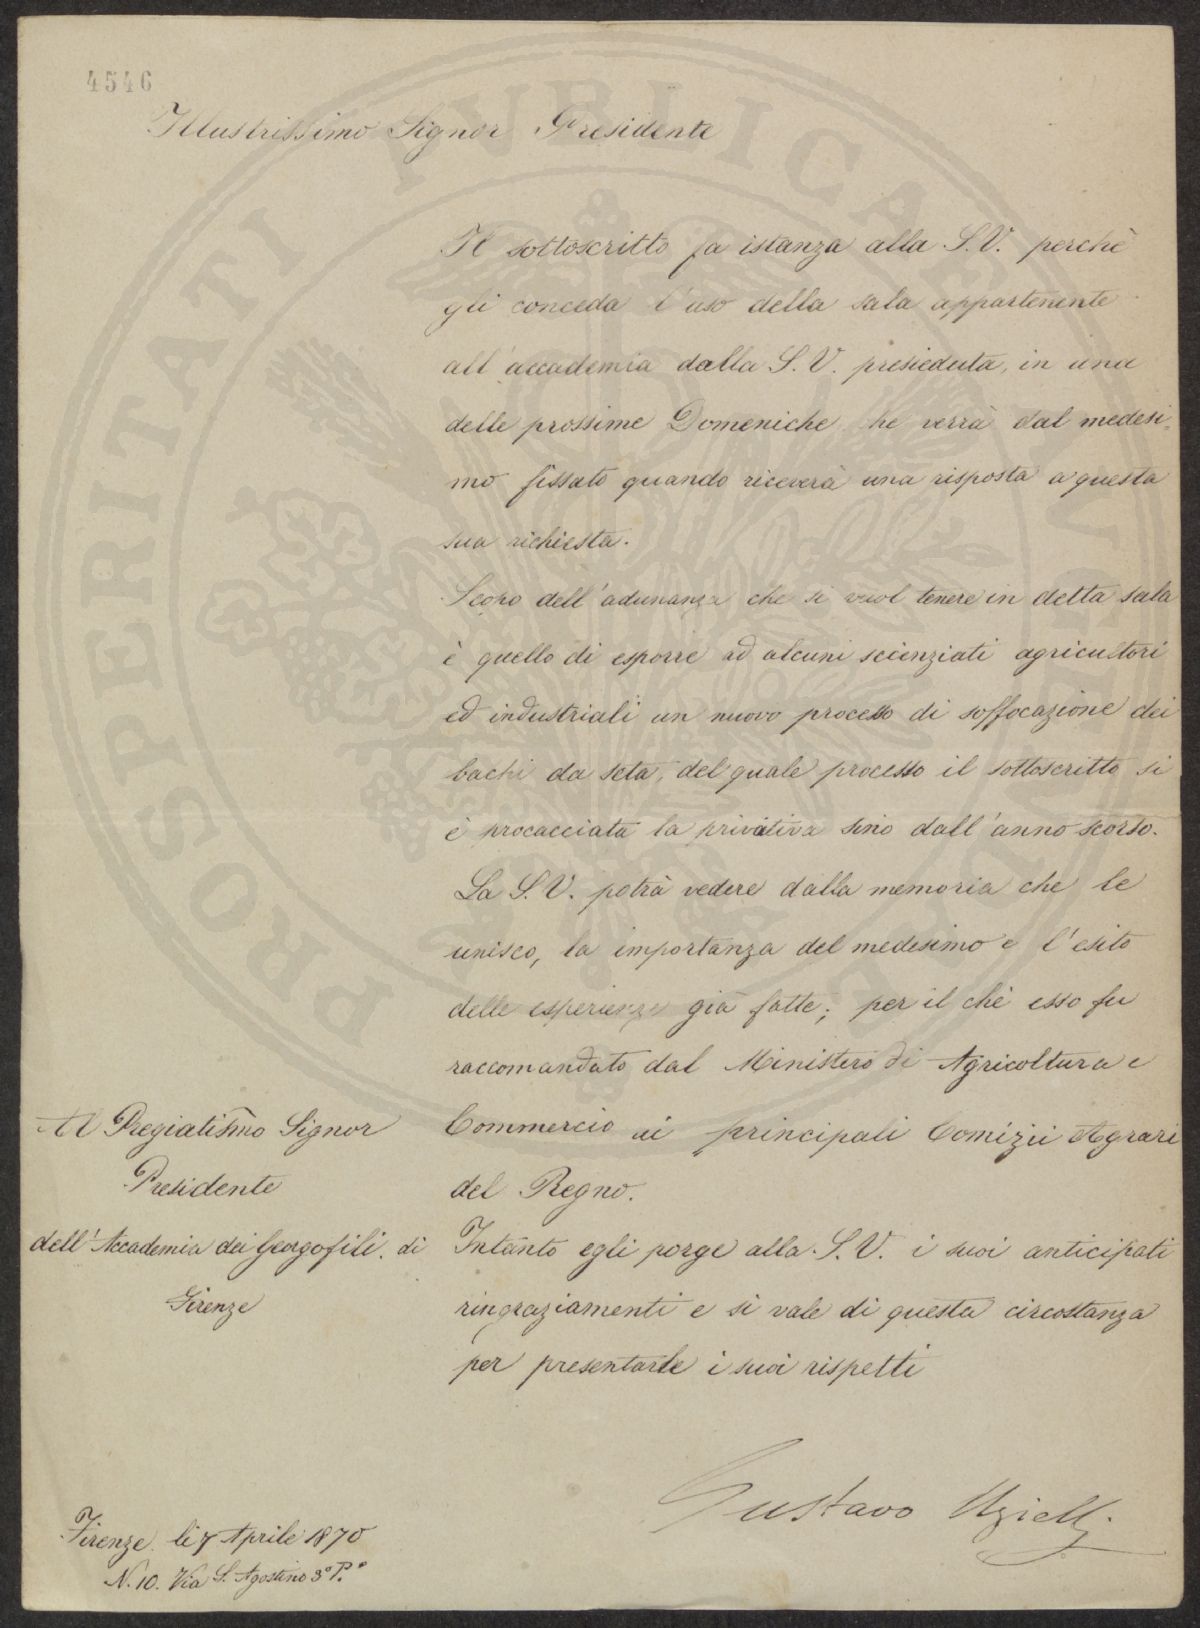 4546
Illustrissimo Signor Presidente
Il sottoscritto fa istanza alla S.V. perchè
gli conceda l'uso della sala appartenente
all'accademia dalla S.V. presieduta, in una
delle prossime Domeniche che verrà dal medesi-
mo fissato quando riceverà una risposta a questa
sua richiesta.
Scopo dell'adunanza che si vuol tenere in detta sala
è quello di esporre ad alcuni scienziati agricultori
ed industriali un nuovo processo di soffocazione dei
bachi da seta, del quale processo il sottoscritto si
è procacciata la privativa sino dall'anno scorso.
La S.V. potrà vedere dalla memoria che le
unisco, la importanza del medesimo e l'esito
delle esperienze già fatte; per il chè esso fu
raccomandato dal Ministero di Agricoltura e
Commercio ai principali Comizii Agrari
del Regno.
Intanto egli porge alla S.V. i suoi anticipati
ringraziamenti e si vale di questa circostanza
per presentarle i suoi rispetti
Gustavo Uzielli
Al Pregiatismo Signor
Presidente
dell'Accademia dei Georgofili. di
Firenze
Firenze. li 7 Aprile 1870
N. 10. Via S. Agostino 3° P.°
PROSPERITATI PVBLICAE AVGENDAE